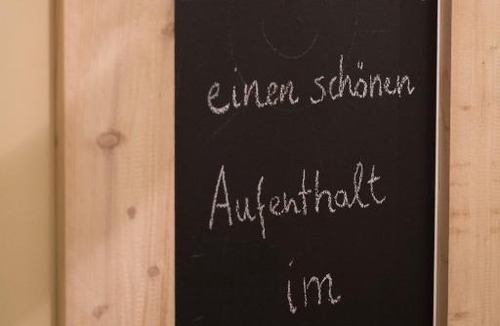 einen schönen
Aufenthalt
im